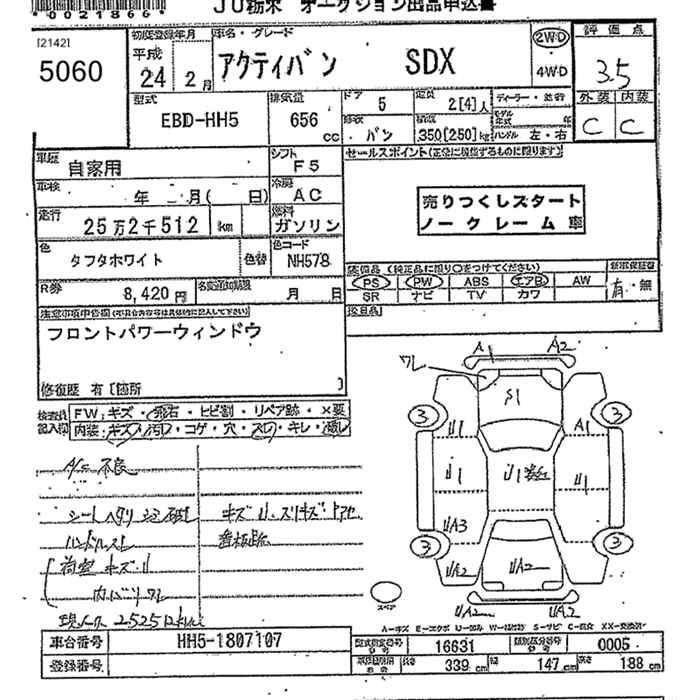 JU栃木 オークション出品申込書
*0021866*
[2142]
5060
初度登録年月
平成
24 2月
車名・グレード
アクティバン SDX
2WD
4WD
評価点
3.5
外装 内装
C C
型式
EBD-HH5
排気量
656
cc
ドア
5
バン
定員
2[4]人
積載
350[250]kg
ディーラー・並行
モデル年式 年
ハンドル 左・右
車歴
自家用
シフト
F5
車検
年 月( 日)
冷房
AC
走行
25万2千512 km
燃料
ガソリン
色
タフタホワイト
色替
色コード
NH578
R券
8,420円
名変通知期限
月 日
セールスポイント(正常に機能するものに限ります)
売りつくしスタート
ノークレーム車
装備品 (純正品に限り〇をつけてください)
PS PW ABS エアB AW
SR ナビ TV カワ
新車保証書
有・無
注意事項申告欄(不具合内容は具体的に記入して下さい)
フロントパワーウィンドウ
修復歴 有〔箇所 〕
検査員記入欄
FW:キズ・飛石・ヒビ割・リペア跡・X要
内装:キズ・汚れ・コゲ・穴・スレ・キレ・
A/C不良
シートヘタリ
キズU・スリキズ・ドアセ
ハンドルスレ
荷室キズU
内バリワレ
現メーター
ワレ A1 A2
S1
3 3
U1 A1
U1 U1 U1
UA3
3 3
UA2 UA2
UA2 UA2
スペア
A-キズ E-エクボ U-凹み W-補修跡 S-サビ C-腐食 XX-交換済
車台番号
HH5-1807107
登録番号
型式指定番号
16631
類別区分番号
0005
長さ 339cm
幅 147cm
高さ 188cm